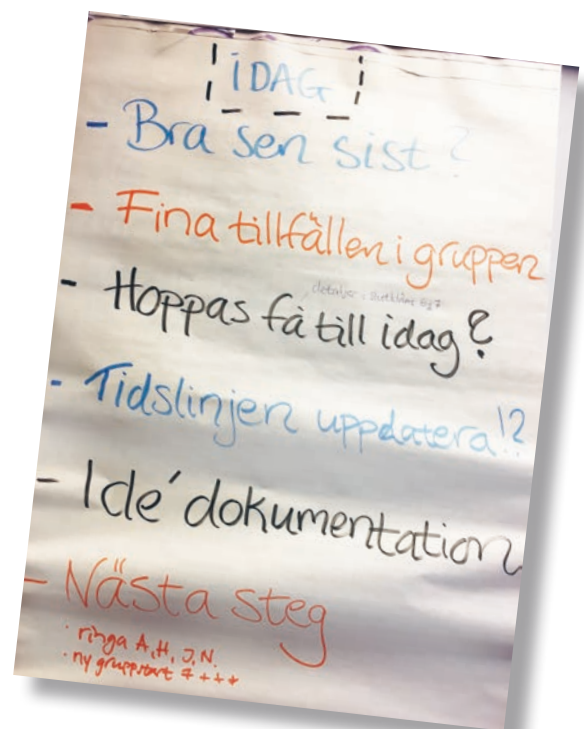 iDAG
- Bra sen sist?
- Fina tillfällen i gruppen
detaljer:
- Hoppas få till idag?
- Tidslinjen uppdatera!?
- Idé dokumentation
- Nästa steg
· ringa A, H, J, N.
· ny gruppstart 7 +++